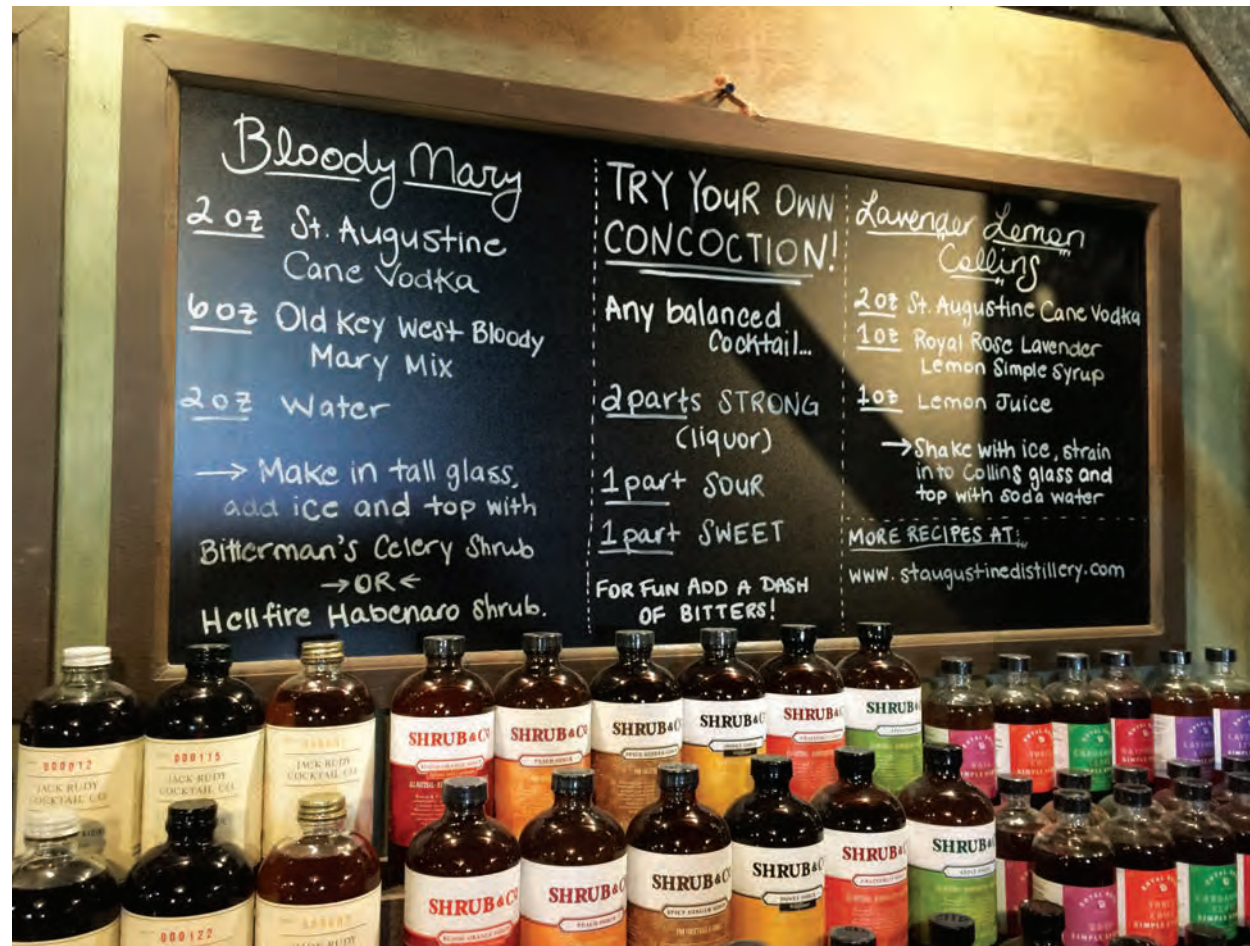 Bloody Mary
2 oz St. Augustine
Cane Vodka
6 oz Old Key West Bloody
Mary Mix
2 oz Water
→ Make in tall glass,
add ice and top with
Bitterman's Celery Shrub
→OR←
Hellfire Habenaro Shrub.
TRY YOUR OWN
CONCOCTION!
Any balanced
Cocktail...
2 parts STRONG
(liquor)
1 part SOUR
1 part SWEET
FOR FUN ADD A DASH
OF BITTERS!
Lavender Lemon
Collins
2 oz St. Augustine Cane Vodka
1 oz Royal Rose Lavender
Lemon Simple Syrup
1 oz Lemon Juice
→ Shake with ice, strain
into Collins glass and
top with soda water
MORE RECIPES AT:
www.staugustinedistillery.com
000012
JACK RUDY
COCKTAIL CO
000115
JACK RUDY
COCKTAIL CO
JACK RUDY
COCKTAIL CO
SHRUB & CO
SHRUB & CO
PEACH SHRUB
SHRUB & CO
SPICY GINGER SHRUB
SHRUB & CO
SHRUB & CO
SHRUB & CO
000122
JACK RUDY
SHRUB & CO
BLOOD ORANGE SHRUB
SHRUB & CO
PEACH SHRUB
SHRUB & CO
SPICY GINGER SHRUB
SHRUB & CO
SHRUB & CO
SHRUB & CO